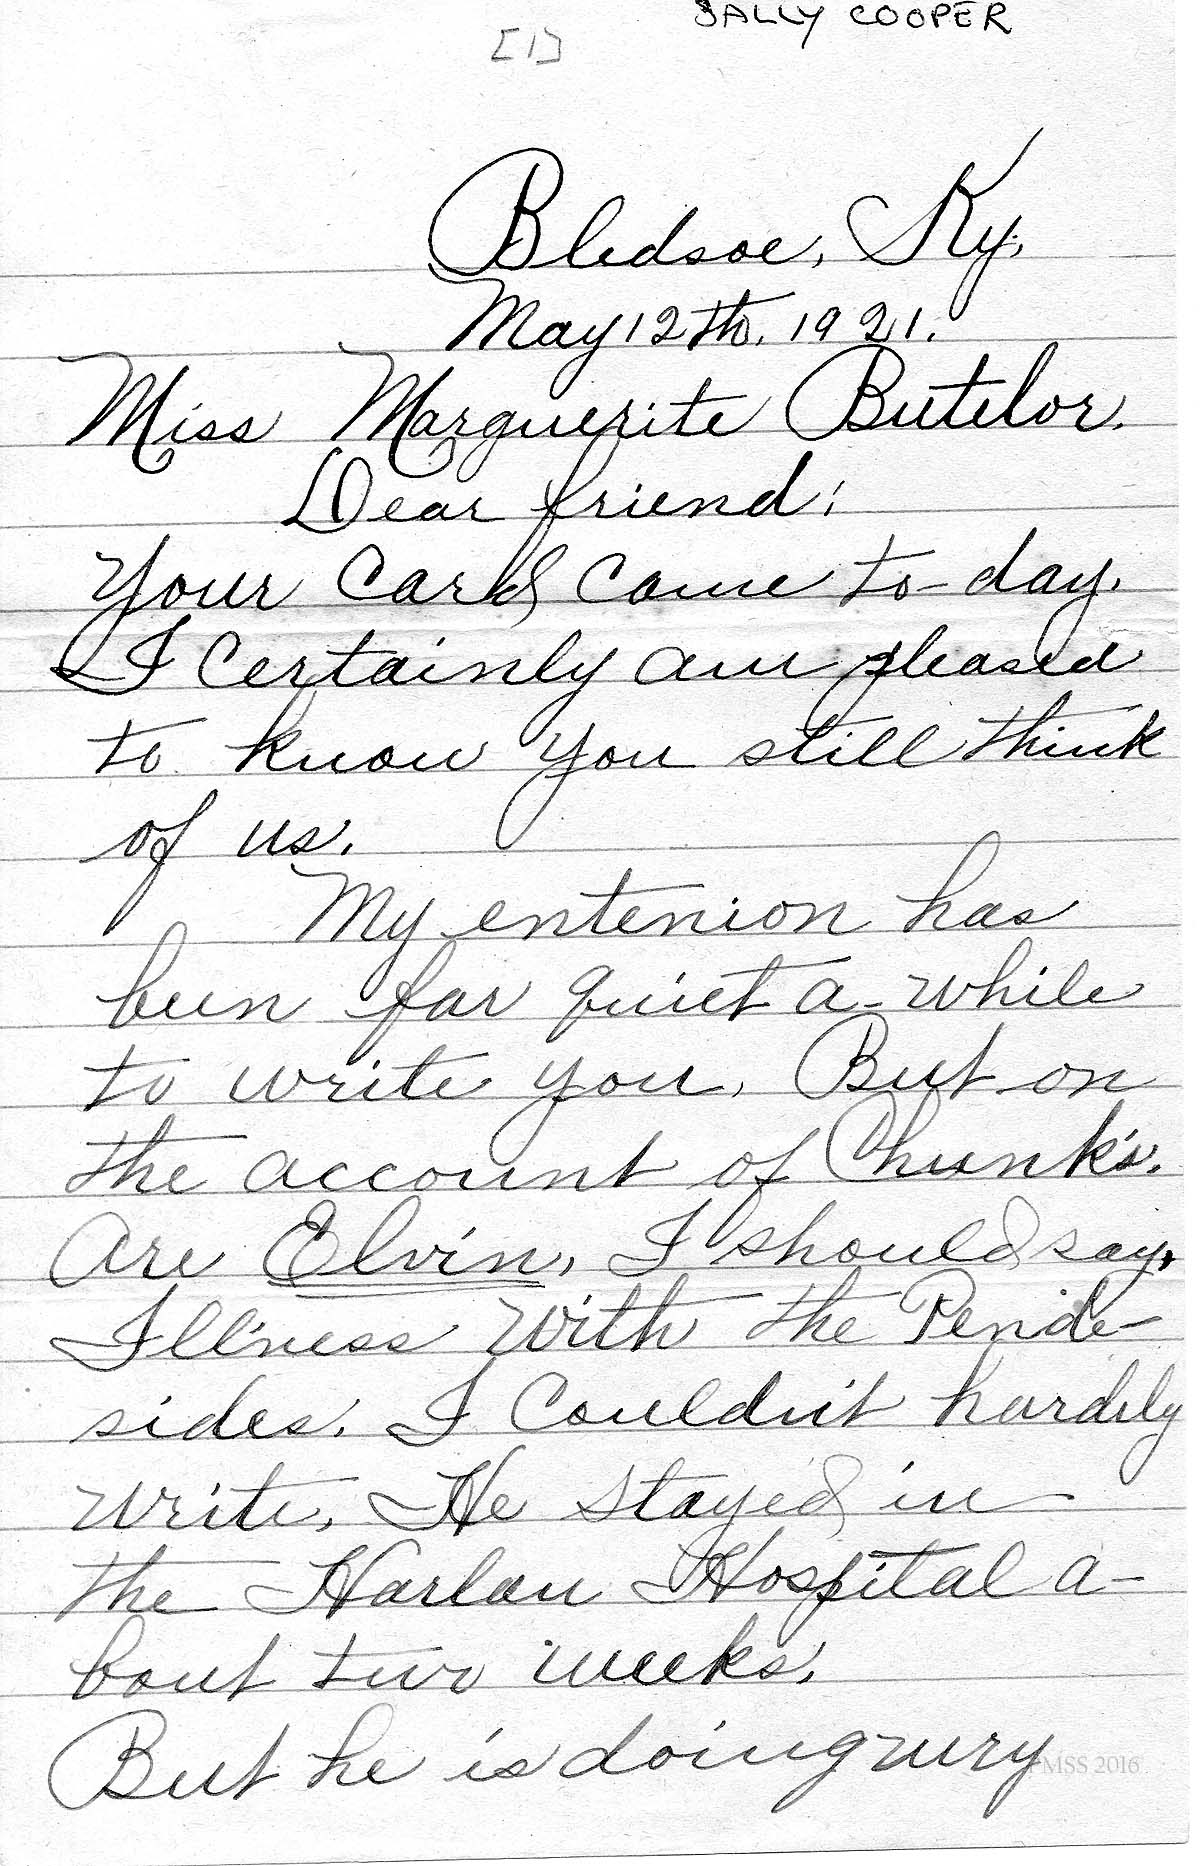 SALLY COOPER
[1]
Bledsoe, Ky,
May 12th. 1921.
Miss Marguerite Butelor.
Dear friend:
Your Card Came to-day.
I Certainly am pleased
to know you still think
of us.
My entenion has
been far quiet a-while
to write you. But on
the account of Chunk's.
Are Elvin, I should say,
Illness with the Pende-
sides. I Couldn't hardly
write, He stayed in
the Harlan Hospital a-
bout two weeks.
But he is doing very
PMSS 2016